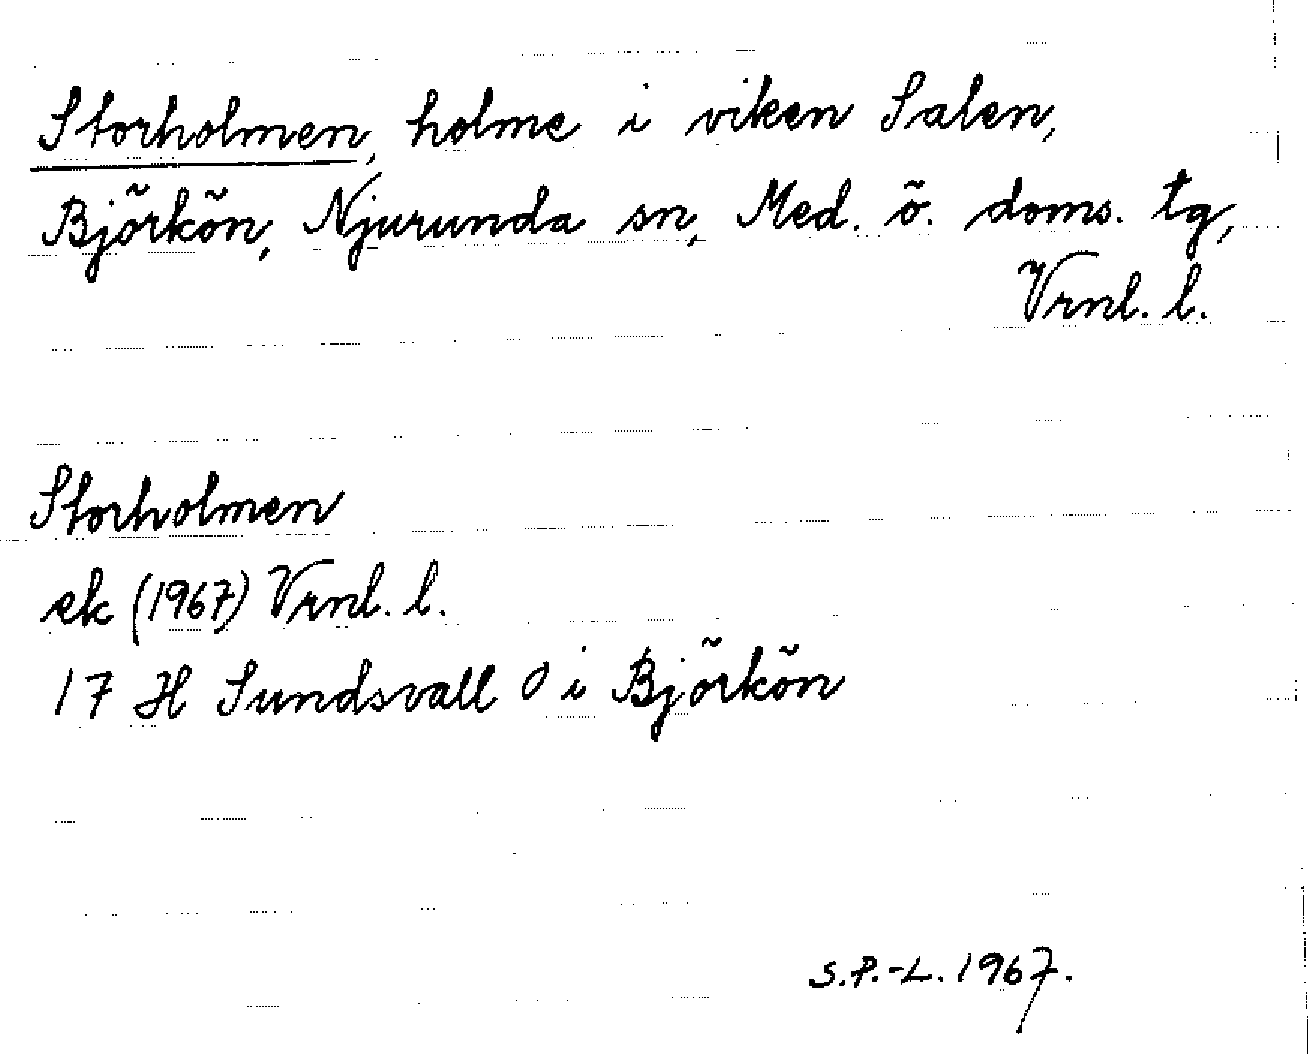 Storholmen, holme i viken Salen,
Björkön, Njurunda sn, Med. ö. doms. tg,
Vrnl. l.
Storholmen
ek (1967) Vrnl. l.
17 H Sundsvall O i Björkön
S.P.-L. 1967.